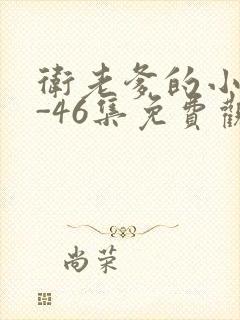 衛老爹的小
-46集免費觀
尚荣